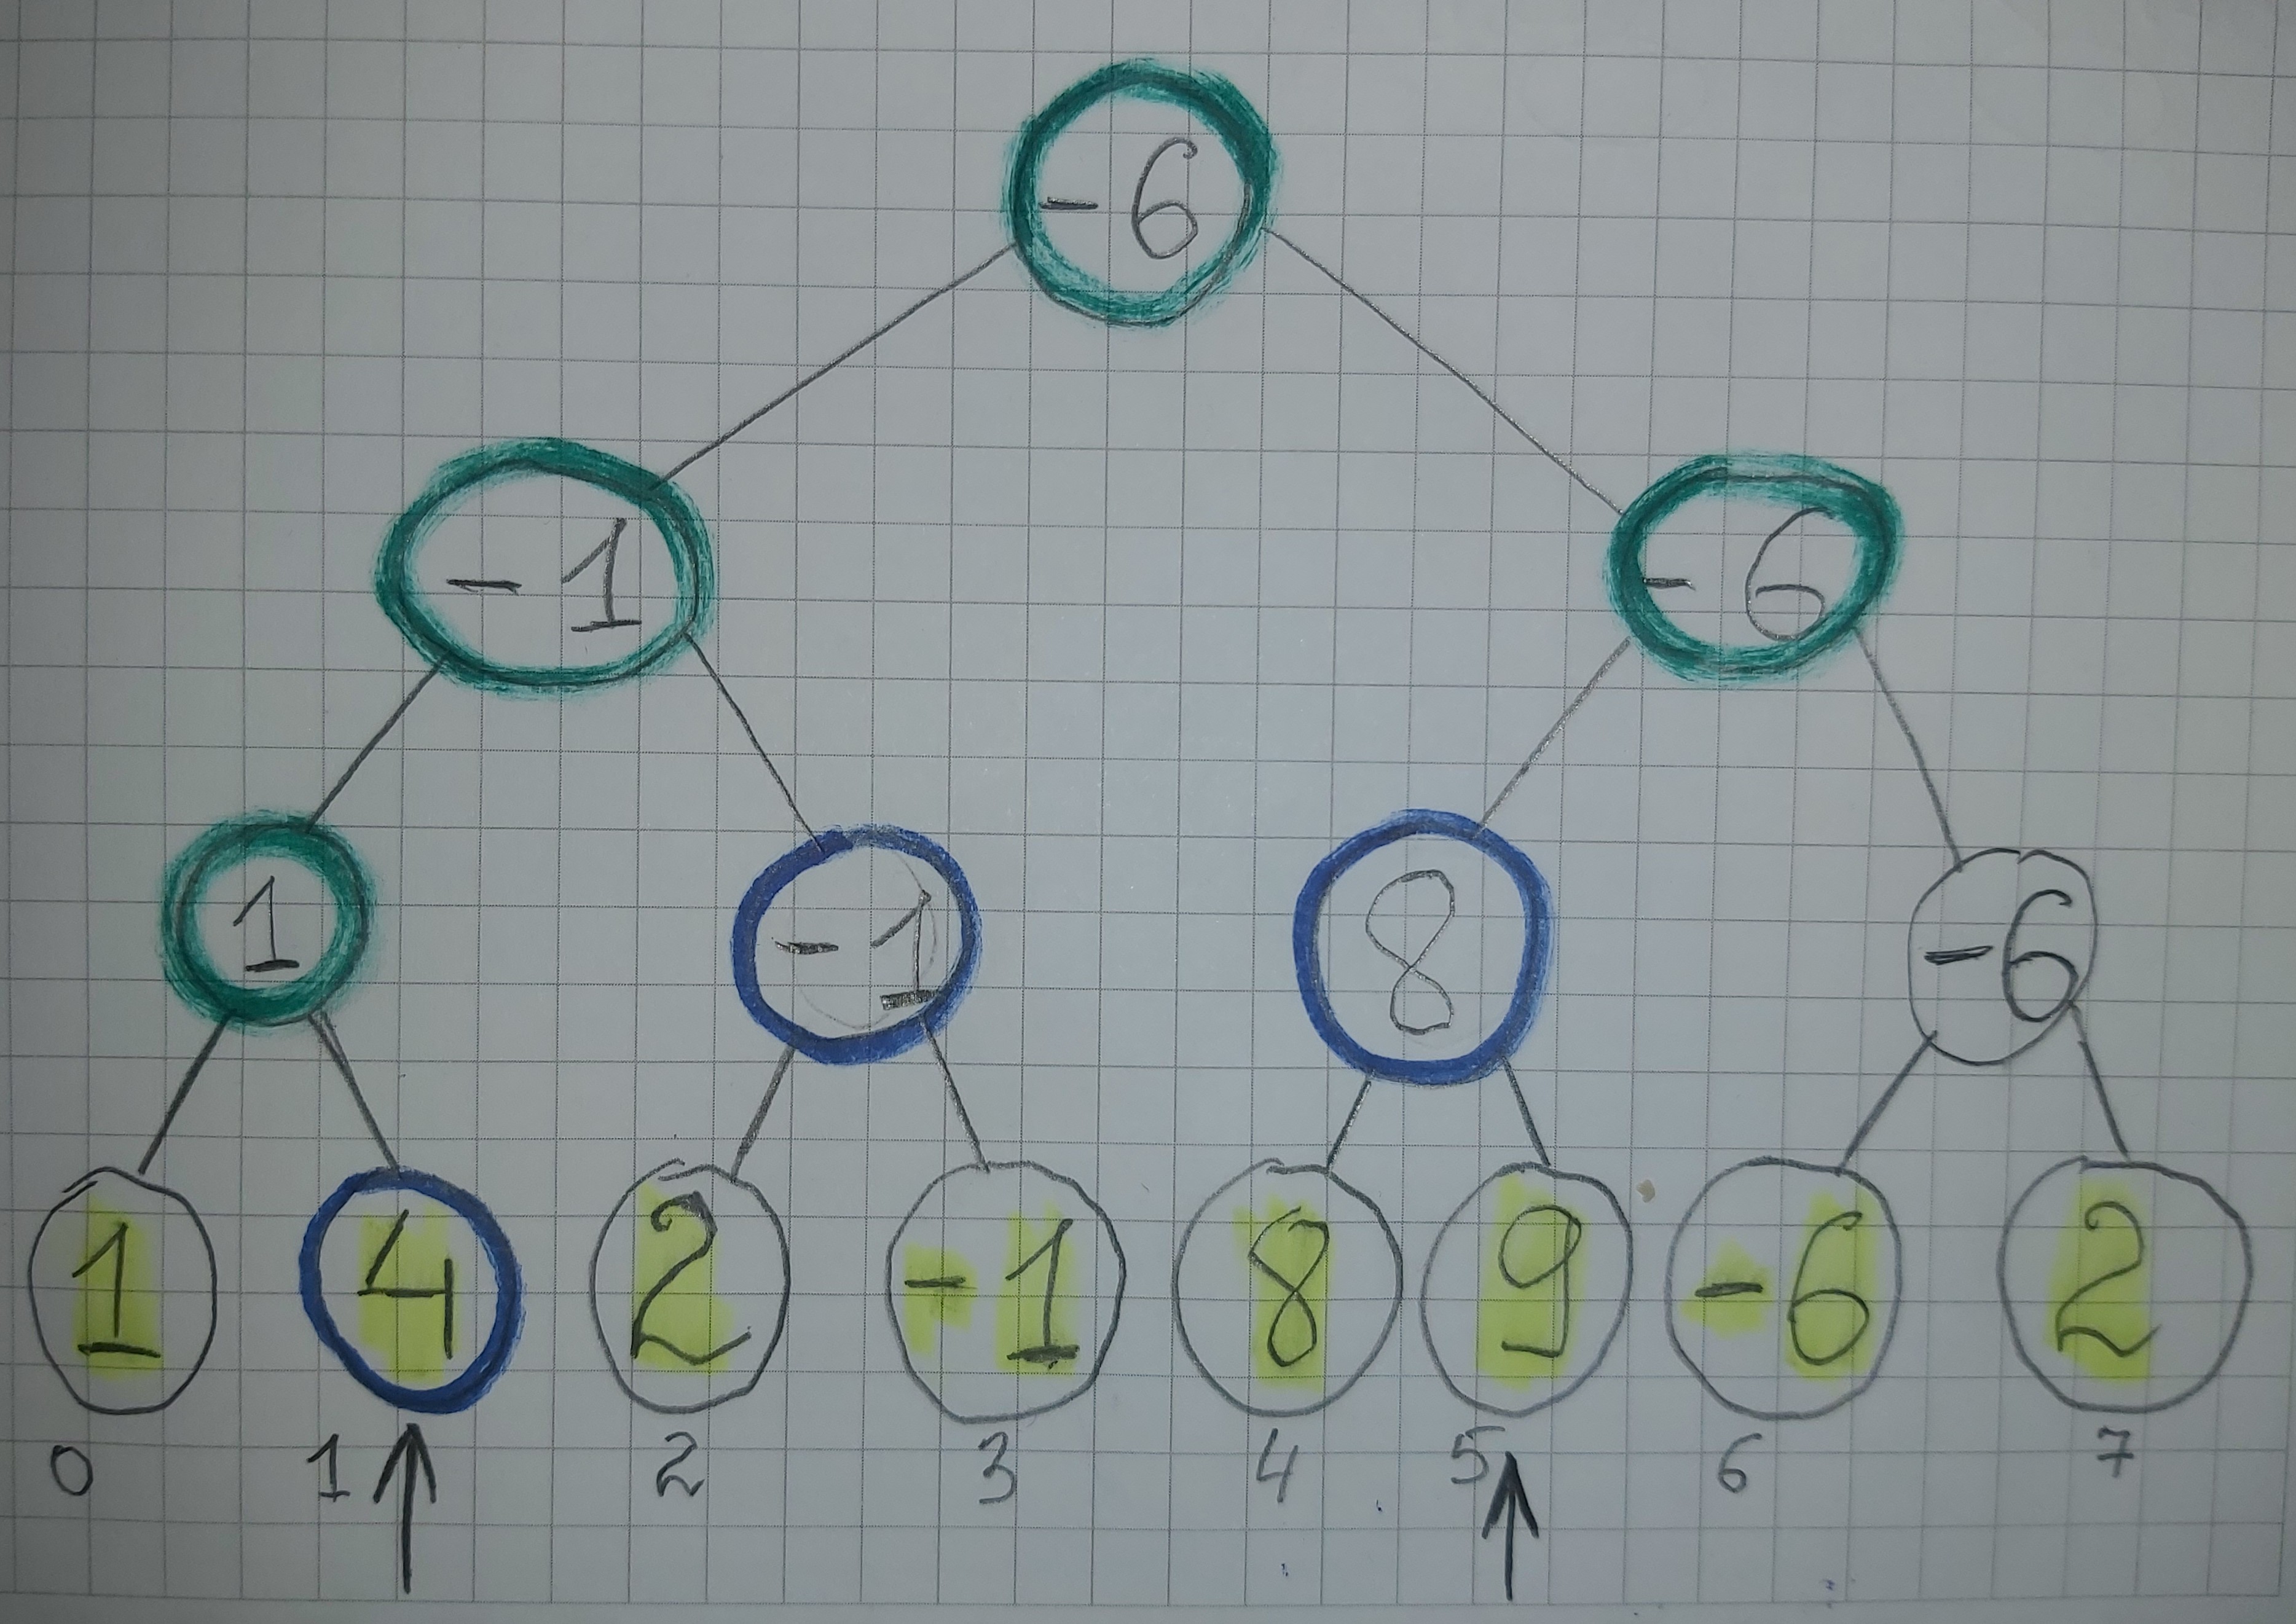 -6
-1 -6
1 -1 8 -6
1 4 2 -1 8 9 -6 2
0 1 2 3 4 5 6 7